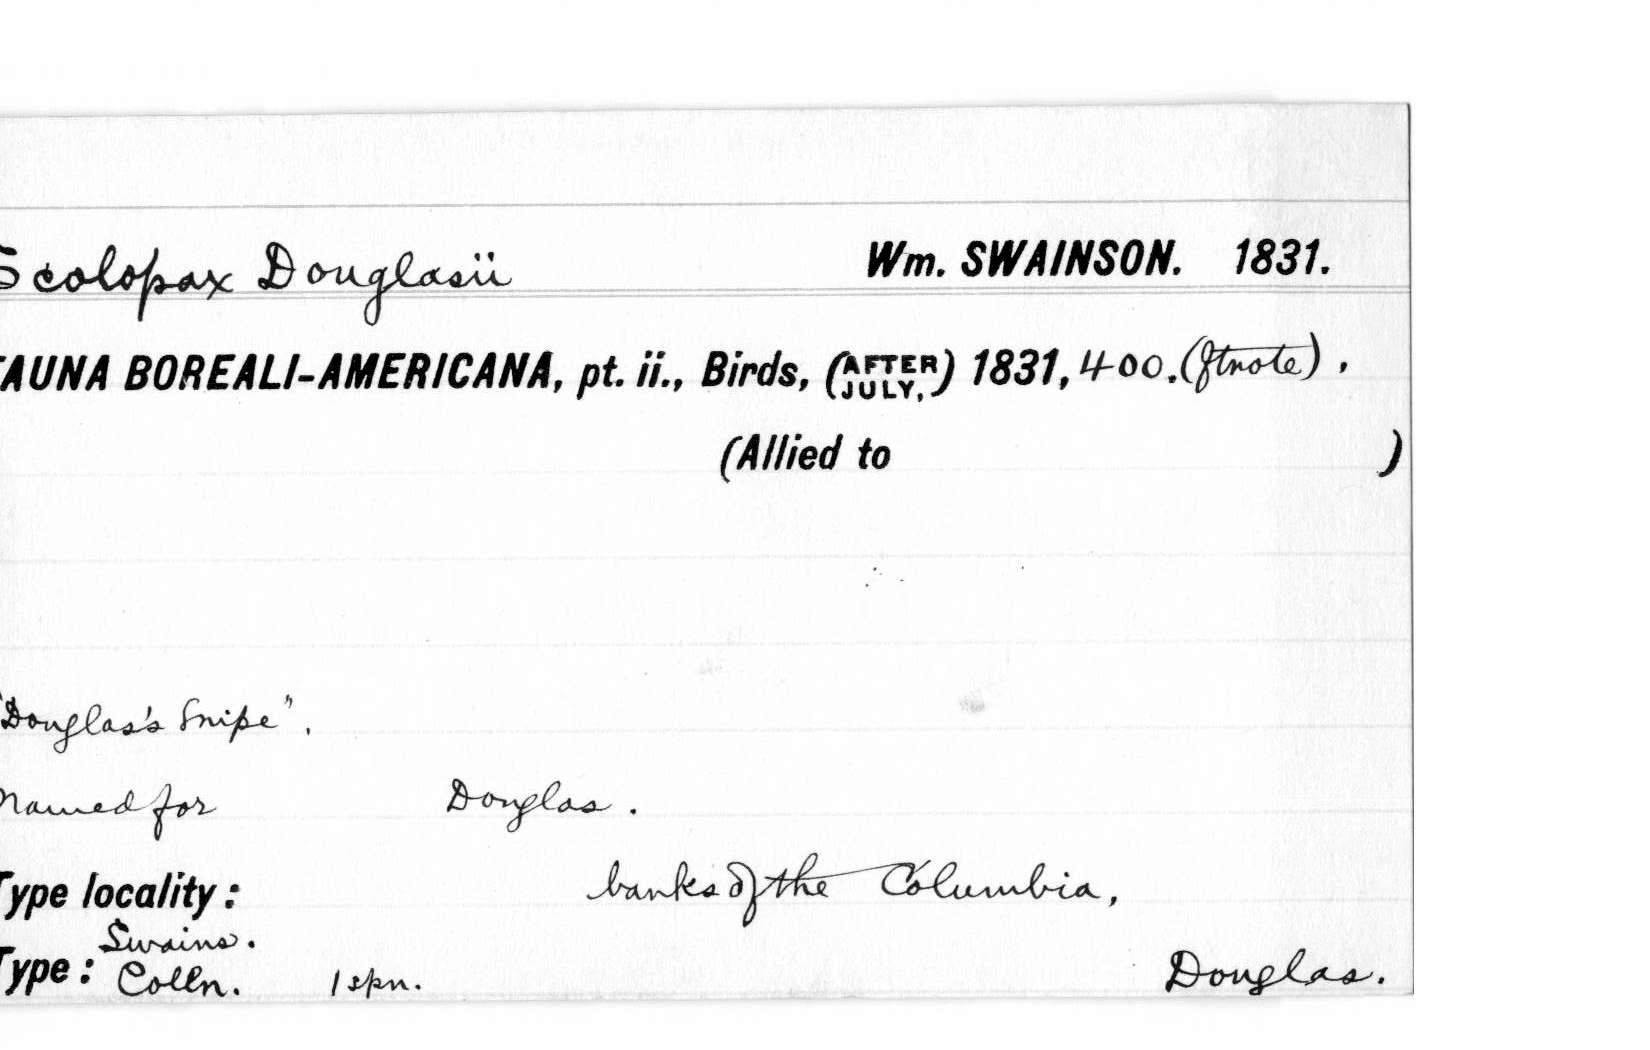 Scolopax Douglasii Wm. SWAINSON. 1831.
FAUNA BOREALI-AMERICANA, pt. ii., Birds, (AFTER JULY,) 1831, 400. (ftnote).
(Allied to )
"Douglas's Snipe".
Named for Douglas.
Type locality: banks of the Columbia,
Swains.
Type: Colln. 1 spn. Douglas.